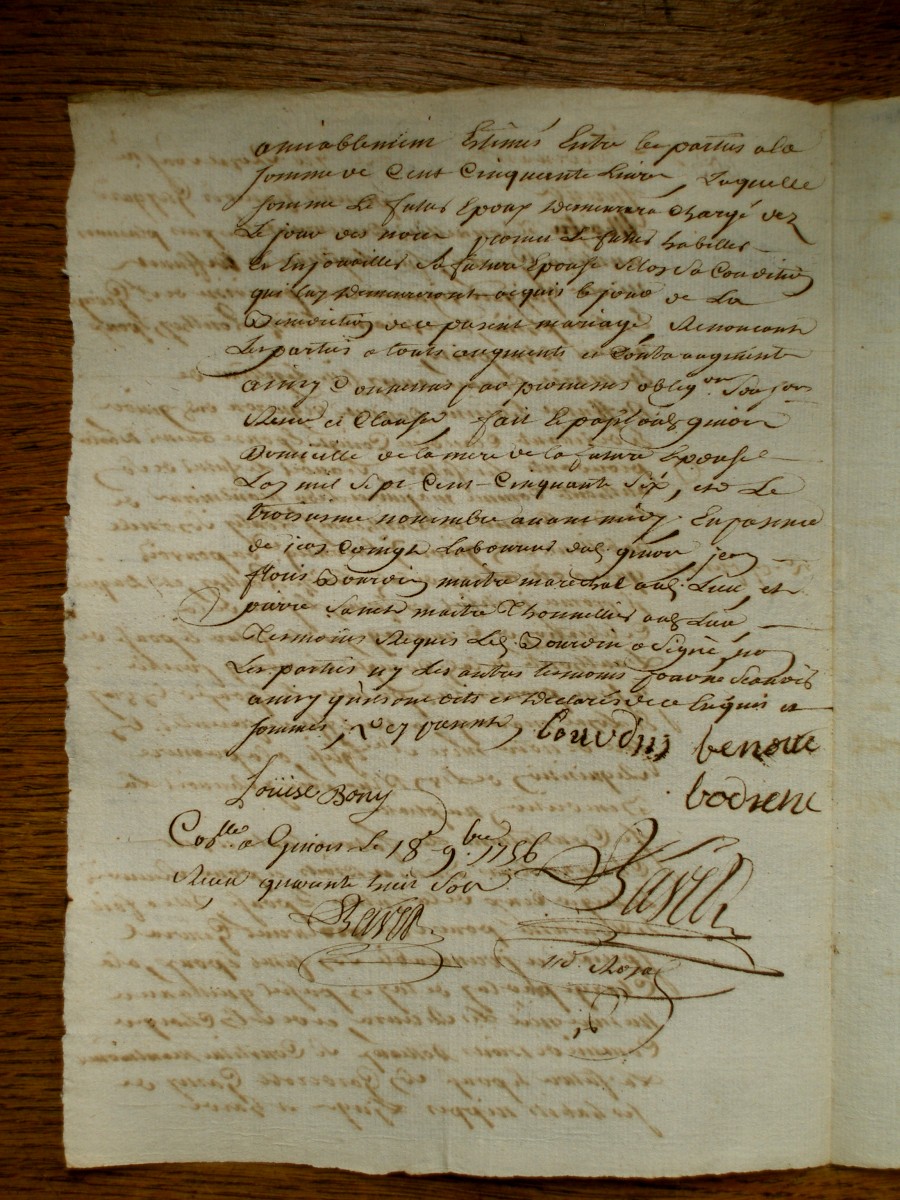 amiablement Estimés Entre les parties a la
somme de Cent Cinquante Livres, Laquelle
somme Le futur Epoux Demeurera chargé dez
Le jour des noces promet Le futur habiller
et Enjouailler sa future Epouse selon sa Condition
qui luy Demeureront acquis le jour de La
Benediction de ce present mariage, Renoncant
Les parties a touts augments et Contre augments
ainsy Convenus par promesses obligon
Renon et Clauses fait et passé aud. ginois
Domicille de la mere de la future Epouse
L'an mil Sept Cent Cinquante Six, et Le
troisieme novembre avant midy En presence
de jean Laboureur dud. ginois jean
maitre marechal aud. Lieu, et
pierre maitre Thonnellier aud. Lieu
Temoins Requis Led. Bourdin a Signé, non
Les parties ny Les autres temoins pour ne Scavoir
ainsy qu'ils ont dits et Declarés de ce Enquis et
sommés,
bourdin benoite
Louise Bony bodiene
Collé a Ginois Le 18e 9bre 1756
Recu quarante huit Sols
Ravel
Ravel
nd. Royal